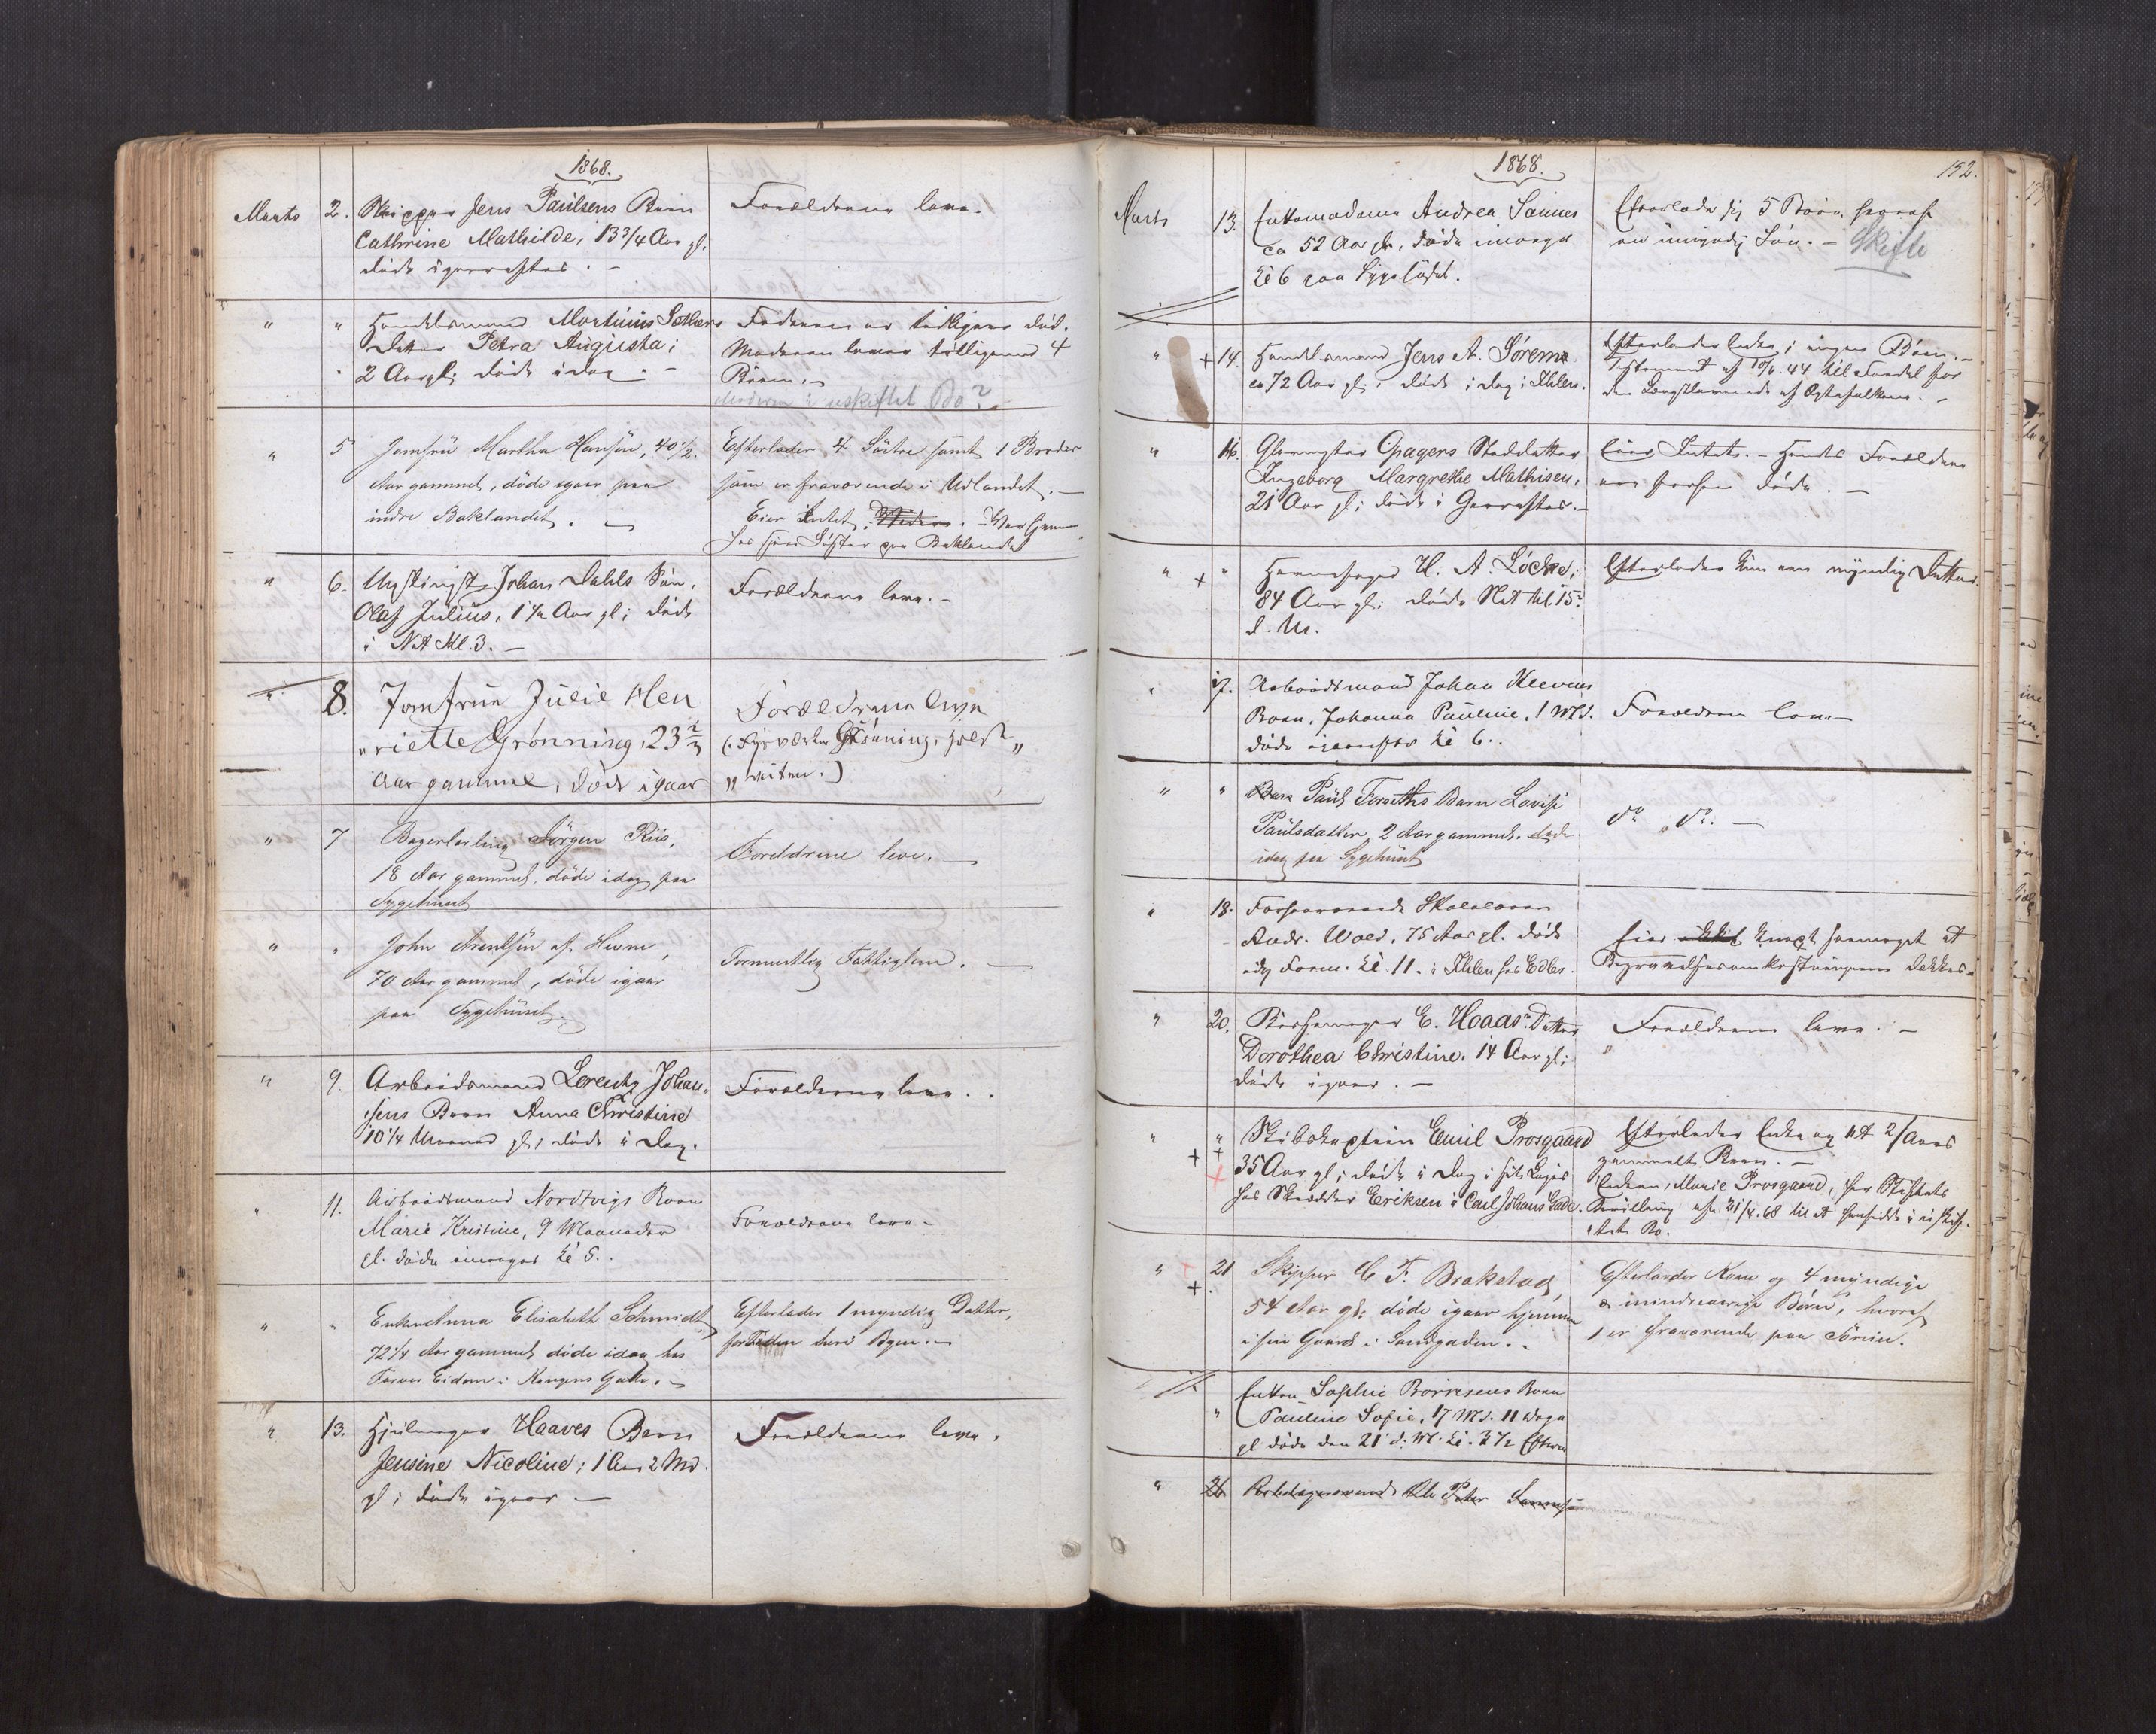 1868.
Marts 2. Skipper Jens Paulsens Barn
Cathrine Mathilde, 13 3/4 Aar gl.
døde igaaraftes. –
Forældrene leve.
" " Handelsmand Martinus Sæthers
Datter Petra Augusta;
2 Aar gl; døde idag. –
Faderen er tidligere død.
Moderen lever tilligemed 4
Børn. –
Moderen i uskiftet Bo?
" 5 Jomfru Martha Hansen, 40 1/2
Aar gammel, døde igaar paa
indre Baklandet. –
Efterlader 4 Søstre samt 1 Broder
som er fraværende i Udlandet. –
Eier Intet. – Var hjemme
hos sin Søster paa Baklandet
" 6. Johan Dahls Søn,
Olaf Julius, 1 1/2 Aar gl; døde
i Nat Kl. 3. –
Forældrene leve. –
" 8. Jomfrue Julie Hen
"riette Grønning, 23 1/2
Aar gammel, døde igaar
Forældrene leve
(Fyrverker Grønning,
" veiten.)
" 7 Bagerlærling Jørgen Riis,
18 Aar gammel, døde idag paa
Sygehuset
Forældrene leve. –
" " John Arentsen af Hevne,
70 Aar gammel, døde igaar
paa Sygehuset.
Formentlig Fattiglem. –
" 9. Arbeidsmand Lorentz Johan"
sens Barn Anna Christine
10 1/4 Maaned gl; døde i Dag.
Forældrene leve. .
" 11. Arbeidsmand Nordtvigs Barn
Marie Kristine, 9 Maaneder
gl. døde imorges Kl 5. .
Forældrene leve –
" " Enken Anna Elisabeth Schmidt
72 1/4 Aar gammel døde idag hos
Farver Eidem i Kongens Gade. –
Efterlader 1 myndig Datter,
for Tiden her i Byen. –
" 13. Hjulmager Haaves Barn
Jensine Nicoline; 1 Aar 2 Md.
gl; døde igaar –
Forældrene leve.
1868.
152.
Marts 13. Enkemadame Andrea
ca 52 Aar gl., døde imorges
Kl 6 paa Sygehuset.
Efterlader sig 5 Børn, hvoraf
en umyndig Søn. – Skifte
" + 14. Handelsmand Jens A. Sørem
ca 72 Aar gl., døde i dag i Ihlen.
Efterlader Enke; ingen Børn. –
Testament af 10/6.44 til Fordel for
den Længstlevende af Ægtefolkene. –
" 16. Opagers Steddatter
Ingeborg Margrethe Mathisen,
21 Aar gl; døde i Gaaraftes. –
Eier Intet. – Hendes Forældre
ere forhen døde. –
" + " H. A. Löcke;
84 Aar gl; døde Nat til 15de
d. M.
Efterlader kun een myndig Datter.
" 17. Arbeidsmand Johan Kleevens
Barn, Johanna Pauline, 1 Md.
døde igaaraftes Kl 6. .
Forældrene leve –
" " Paul Forseths Barn Lovise
Paulsdatter, 2 Aar gammel, døde
idag paa Sygehuset
do do. –
" 18. Forhenværende Skolelærer
Andr. Wold, 75 Aar gl. døde
idag Form. Kl. 11. i Ihlen hos Edler.
Eier knapt saameget at
Begravelsesomkostningerne dækkes.
" 20. Børsemager E. Hoaas' Datter
Dorothea Christine, 14 Aar gl;
døde igaar. –
Forældrene leve. –
" " + + Skibskaptein Emil Prosgaard
35 Aar gl; døde i Dag i sit Logis
hos Skrædder Eriksen i Carl Johans Gade.
Efterlader Enke og et 2/Aars
gammelt Barn. –
Enken, Marie Prosgaard, har Stiftets
Bevilling af 21/4.68 til at hensidde i uskif-
tet Bo.
" + 21 Skipper C. F. Brakstad,
54 Aar gl: døde igaar hjemme
i sin Gaard i Sandgaden. –
Efterlader Kone og 4 myndige
& mindreaarige Børn, hvoraf
1 er fraværende paa Søreise.
" Enken Sophie Børresens Barn
Pauline Sofie, 17 Md. 11 Dage
gl døde den 21 d. M. Kl. 3 1/2 Efterm
" 26 Peter